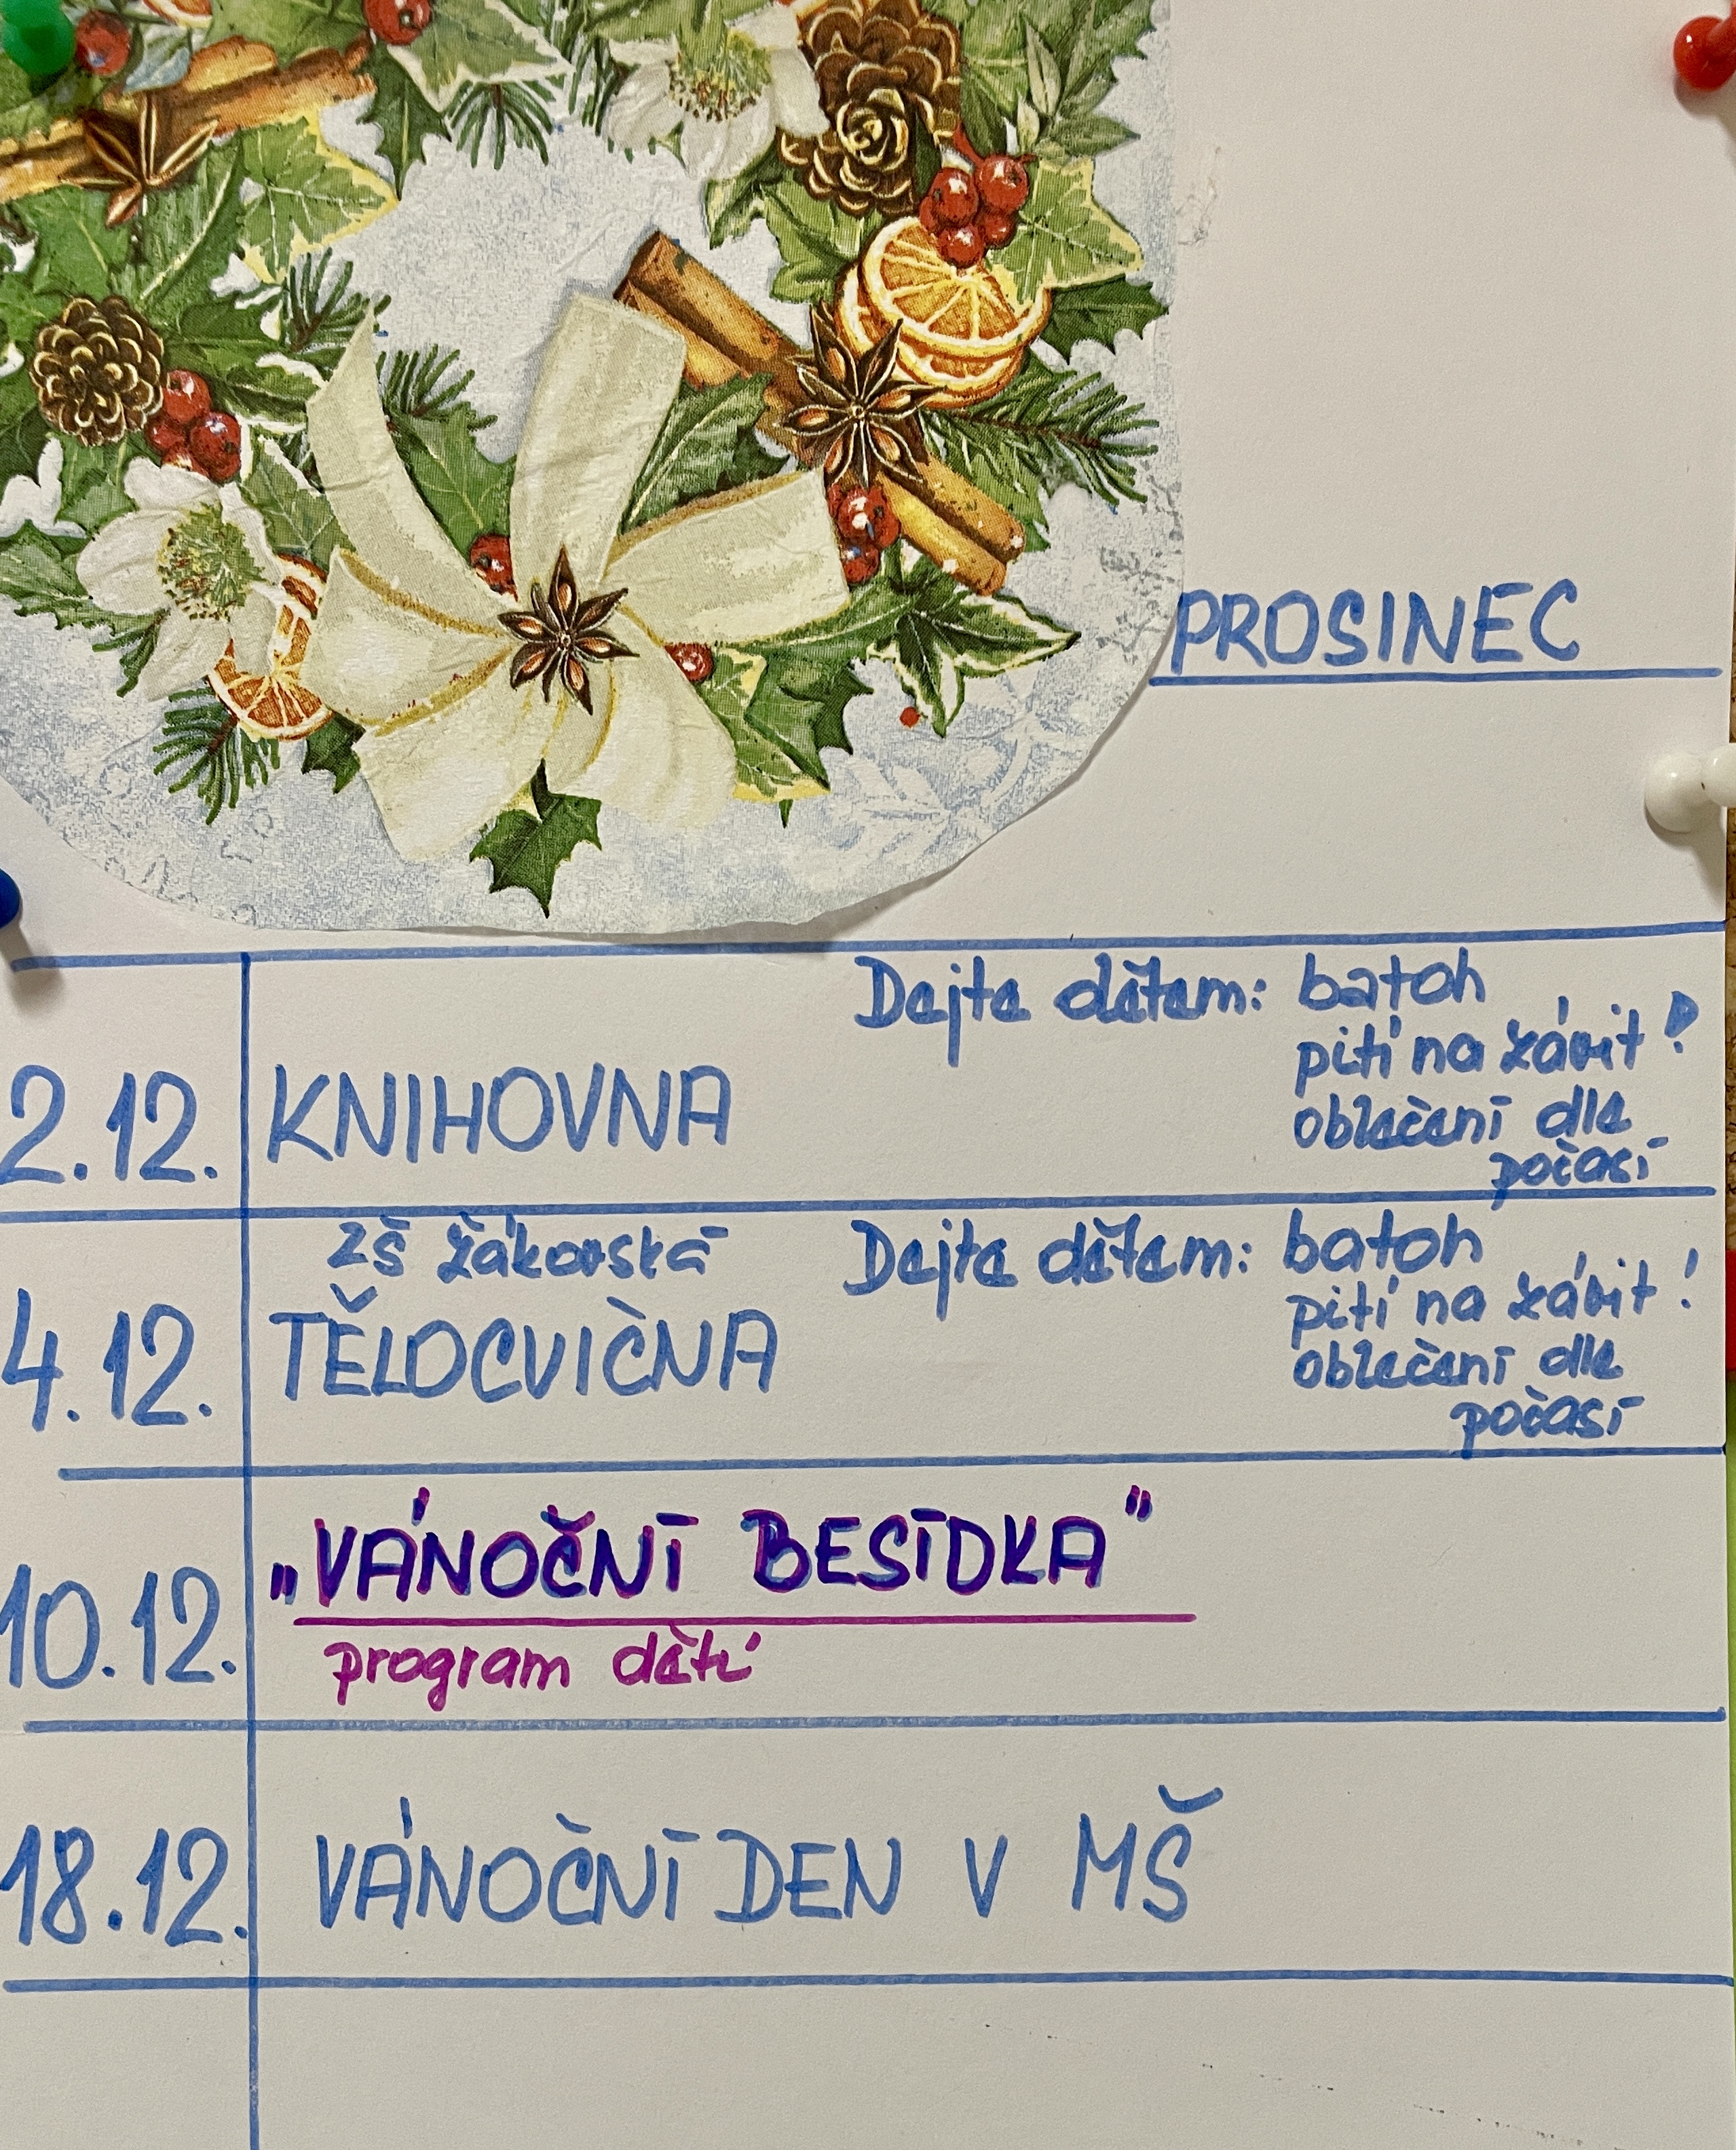 PROSINEC
2.12. KNIHOVNA Dejte dětem: batoh
pití na závit!
oblečení dle
počasí
4.12. ZŠ Žákovská TĚLOCVIČNA Dejte dětem: batoh
pití na závit!
oblečení dle
počasí
10.12. „VÁNOČNÍ BESÍDKA"
program dětí
18.12. VÁNOČNÍ DEN V MŠ